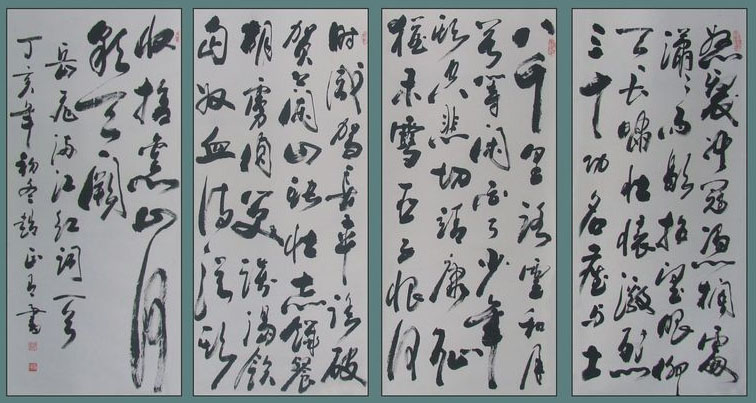 怒髮冲冠憑欄處
瀟々雨歇抬望眼仰
天長嘯壯懷激烈
三十功名塵與土
八千里路雲和月
莫等閑白了少年
頭空悲切靖康恥
猶未雪臣子恨何
時滅駕長車踏破
賀蘭山缺壯志饑餐
胡虜肉笑談渴飲
匈奴血待從頭
收拾舊山河
朝天闕
岳飛滿江紅詞一首
丁亥年初冬趙正書